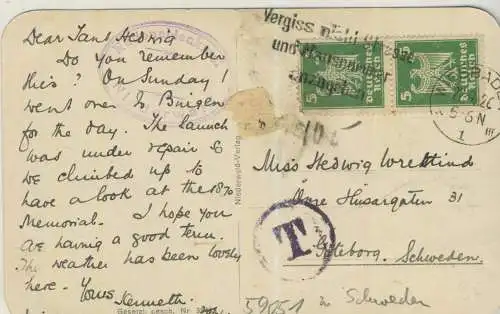 Dear Tant Hedwig
Do you remember
this? On Sunday I
went over to Bingen
for the day. The launch
was under repair so
we climbed up to
have a look at the 1870
Memorial. I hope you
are having a good term.
The weather has been lovely
here. Yours
Kenneth.
Gesetzl. gesch. Nr.
Niederwald-Verlag
Vergiss nicht Strasse
und Hausnummer
anzugeben
5 Deutsches Reich 5 Deutsches Reich
5-6 N
1
Miss Hedwig
Övre Husargatan 31
Göteborg. Schweden.
T
Schweden